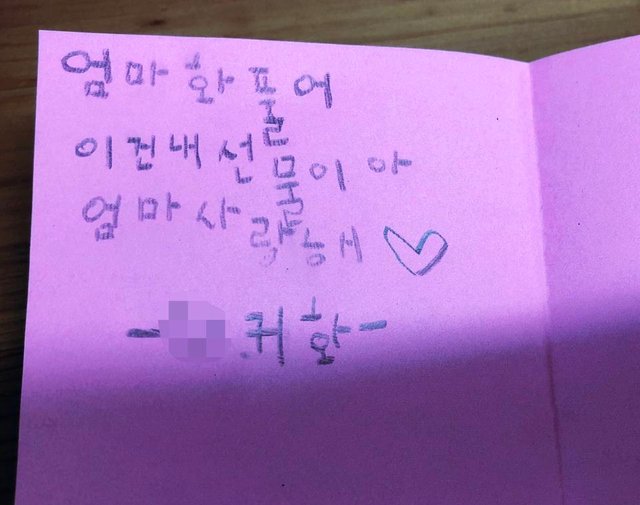 엄마 화 풀어
이건내 선물이아
엄마 사랑해
- 귀화-